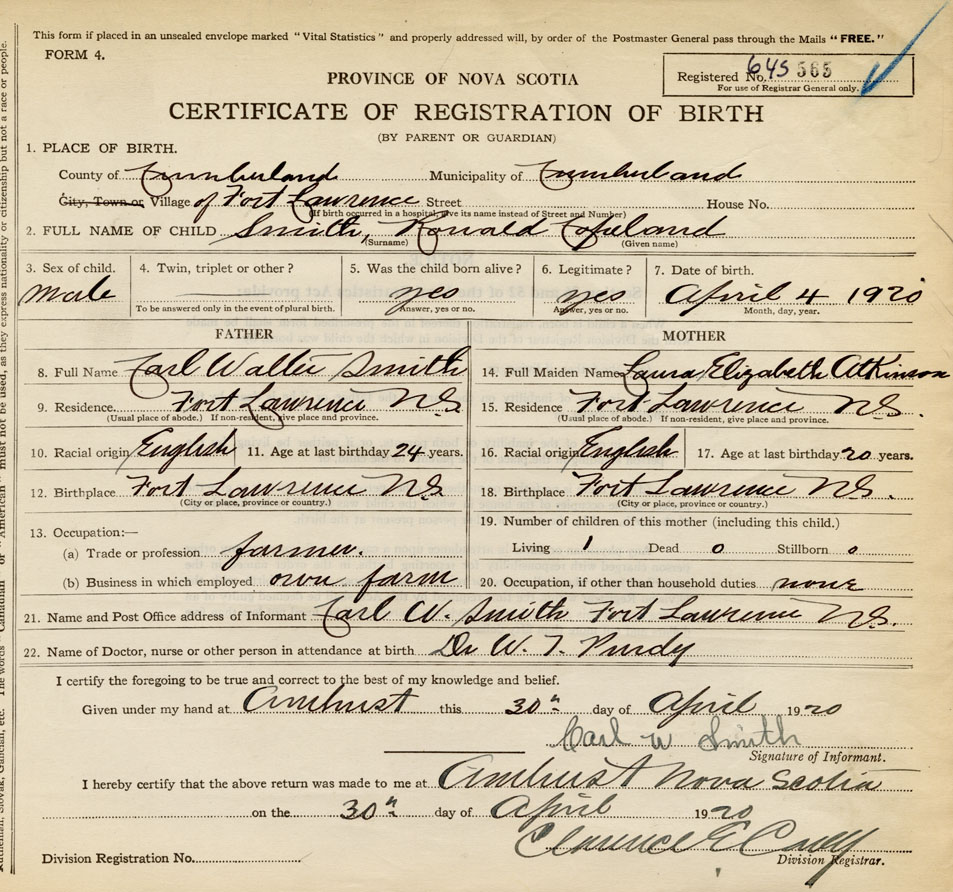 This form if placed in an unsealed envelope marked "Vital Statistics" and properly addressed will, by order of the Postmaster General pass through the Mails "FREE."
FORM 4.
Registered No. 645 565
For use of Registrar General only.
PROVINCE OF NOVA SCOTIA
CERTIFICATE OF REGISTRATION OF BIRTH
(BY PARENT OR GUARDIAN)
1. PLACE OF BIRTH.
County of Cumberland Municipality of Cumberland
City, Town or Village of Fort Lawrence Street House No.
(If birth occurred in a hospital, give its name instead of Street and Number)
2. FULL NAME OF CHILD Smith, Ronald Copeland
(Surname) (Given name)
3. Sex of child. 4. Twin, triplet or other? 5. Was the child born alive? 6. Legitimate? 7. Date of birth.
male yes yes April 4 1920
To be answered only in the event of plural birth. Answer, yes or no. Answer, yes or no. Month, day, year.
FATHER MOTHER
8. Full Name Carl Walter Smith 14. Full Maiden Name Laura Elizabeth Atkinson
9. Residence Fort Lawrence N.S. 15. Residence Fort Lawrence N.S.
(Usual place of abode.) If non-resident, give place and province. (Usual place of abode.) If non-resident, give place and province.
10. Racial origin English 11. Age at last birthday 24 years. 16. Racial origin English 17. Age at last birthday 20 years.
12. Birthplace Fort Lawrence N.S. 18. Birthplace Fort Lawrence N.S.
(City or place, province or country.) (City or place, province or country.)
13. Occupation:— 19. Number of children of this mother (including this child.)
(a) Trade or profession farmer. Living 1 Dead 0 Stillborn 0
(b) Business in which employed own farm 20. Occupation, if other than household duties none
21. Name and Post Office address of Informant Carl W. Smith Fort Lawrence N.S.
22. Name of Doctor, nurse or other person in attendance at birth Dr W. T. Purdy
I certify the foregoing to be true and correct to the best of my knowledge and belief.
Given under my hand at Amherst this 30th day of April 1920
Carl W Smith
Signature of Informant.
I hereby certify that the above return was made to me at Amherst Nova Scotia
on the 30th day of April 1920
Clarence E
Division Registration No. Division Registrar.
must not be used, as they express nationality or citizenship but not a race or people.
Ruthenian, Slovak, Galician, etc. The words "Canadian" or "American"